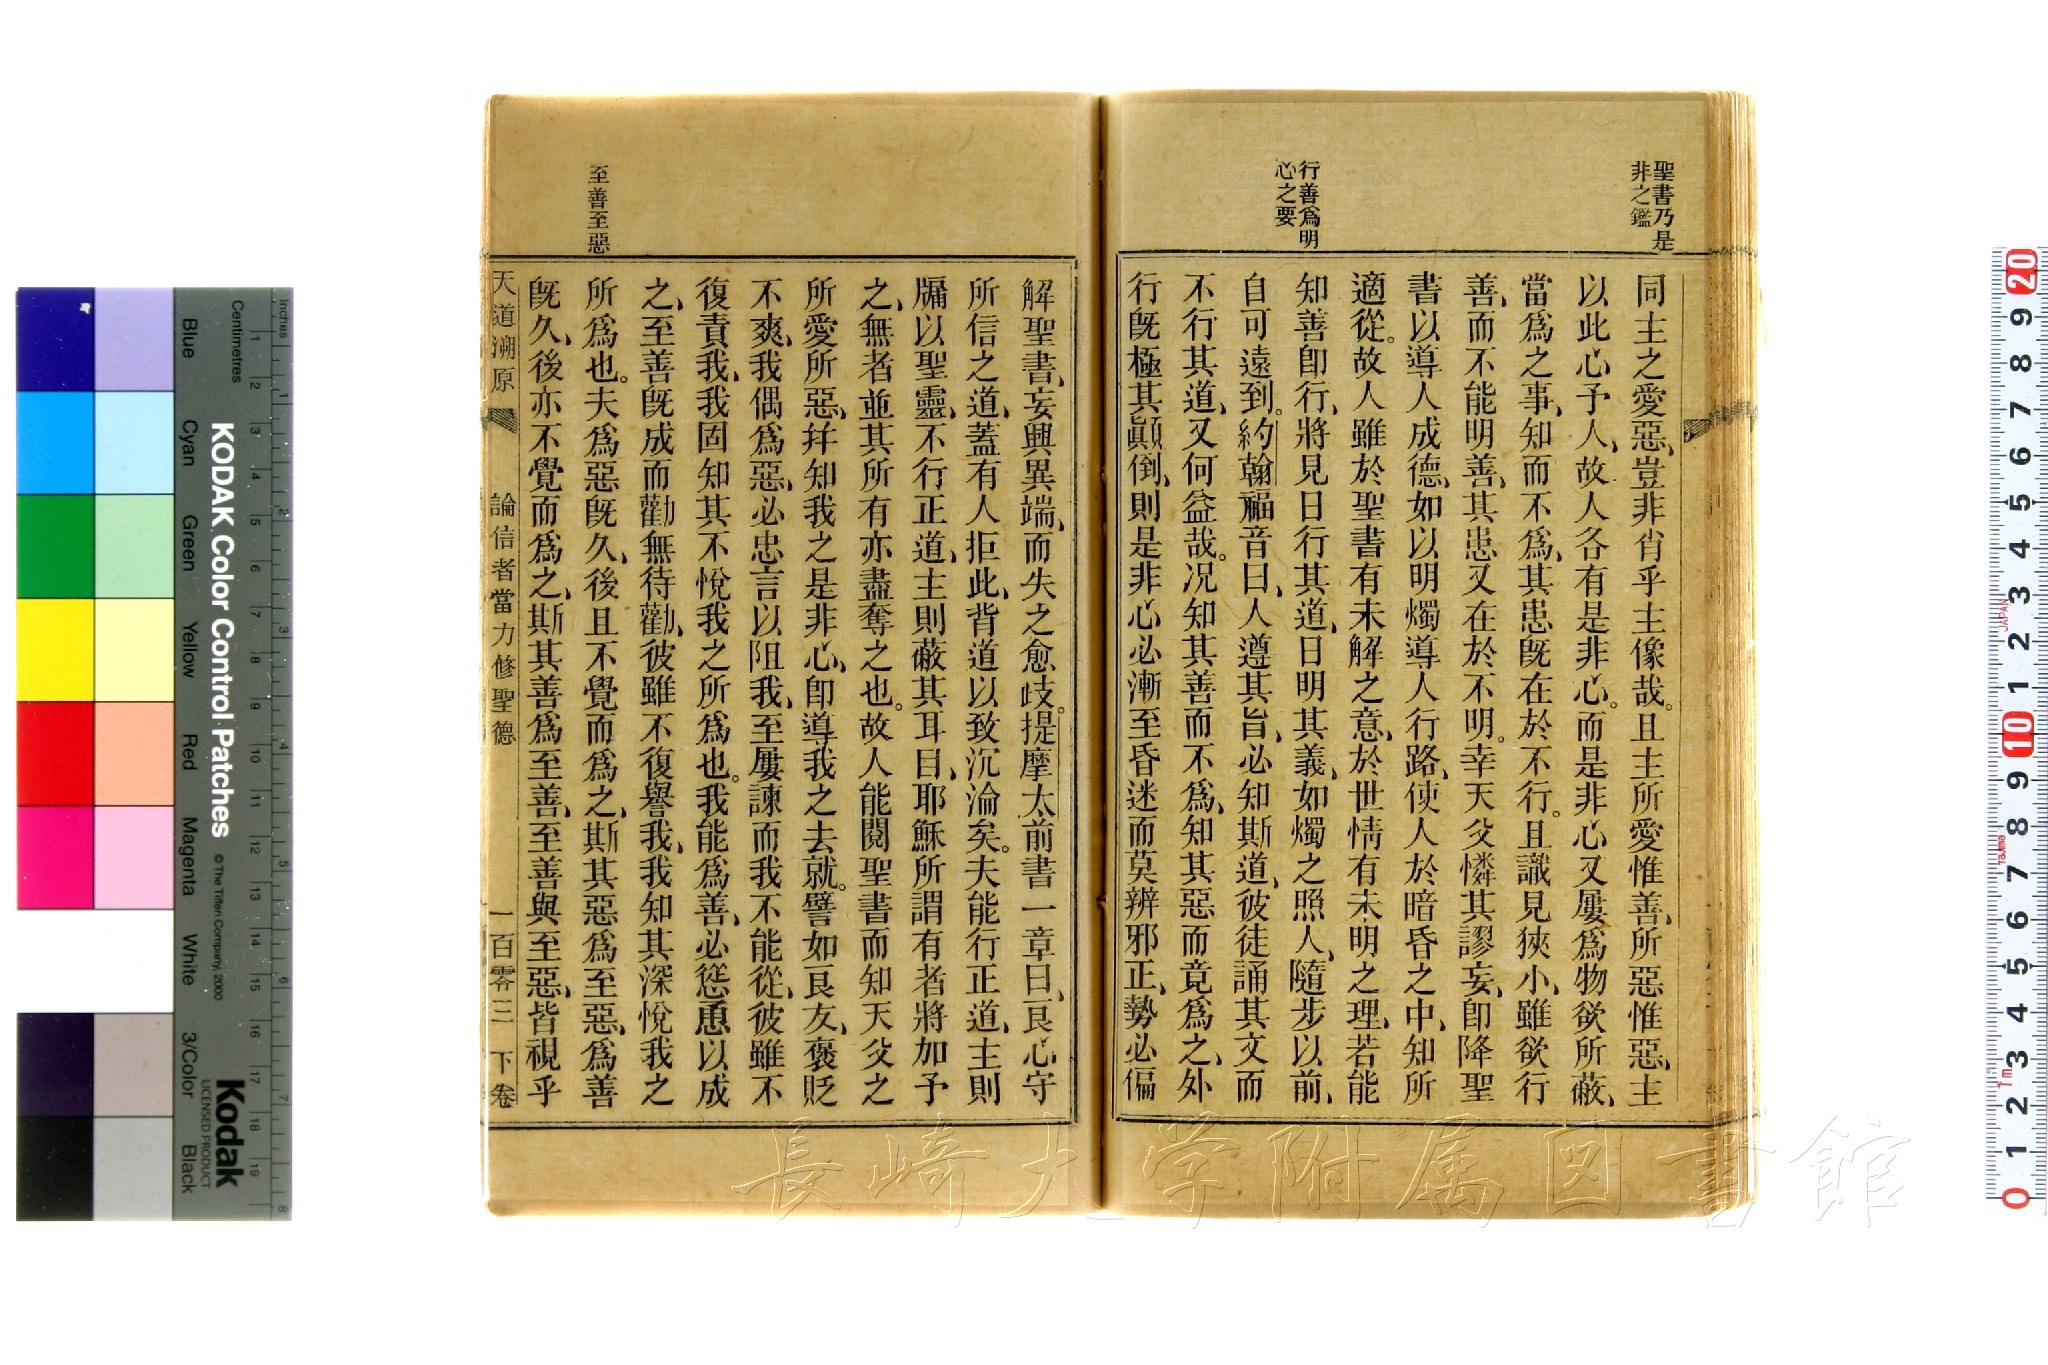 聖書乃是
非之鑑
行善爲明
心之要
同主之愛惡、豈非肖乎主像哉。且主所愛惟善、所惡惟惡、主
以此心予人、故人各有是非心。而是非心又屢爲物欲所蔽、
當爲之事、知而不爲、其患旣在於不行。且識見狹小、雖欲行
善、而不能明善、其患又在於不明。幸天父憐其謬妄、卽降聖
書以導人成德、如以明燭導人行路、使人於暗昏之中、知所
適從。故人雖於聖書有未解之意、於世情有未明之理、若能
知善卽行、將見日行其道、日明其義、如燭之照人、隨步以前、
自可遠到。約翰福音曰、人遵其旨、必知斯道、彼徒誦其文而
不行其道、又何益哉。况知其善而不爲、知其惡而竟爲之、外
行旣極其顚倒、則是非心必漸至昏迷而莫辨邪正、勢必偏
至善至惡
解聖書、妄興異端、而失之愈歧。提摩太前書一章曰、良心守
所信之道、蓋有人拒此、背道以致沉淪矣。夫能行正道、主則
牖以聖靈、不行正道、主則蔽其耳目、耶穌所謂有者將加予
之、無者並其所有亦盡奪之也。故人能閱聖書而知天父之
所愛所惡、幷知我之是非心、卽導我之去就。譬如良友、褒貶
不爽、我偶爲惡、必忠言以阻我、至屢諫而我不能從、彼雖不
復責我、我固知其不悅我之所爲也。我能爲善、必慫恿以成
之、至善旣成而勸無待勸、彼雖不復譽我、我知其深悅我之
所爲也。夫爲惡旣久、後且不覺而爲之、斯其惡爲至惡、爲善
旣久、後亦不覺而爲之、斯其善爲至善、至善與至惡、皆視乎
天道溯原 論信者當力修聖德 一百零三 下卷
長崎大学附属図書館
KODAK Color Control Patches
© The Tiffen Company, 2000
Kodak
LICENSED PRODUCT
Inches
Centimetres
Blue Cyan Green Yellow Red Magenta White 3/Color Black
1 2 3 4 5 6 7 8
1 2 3 4 5 6 7 8 9 10 11 12 13 14 15 16 17 18 19
20 9 8 7 6 5 4 3 2 1 10 9 8 7 6 5 4 3 2 1 0
JAPAN
Tajima
1m